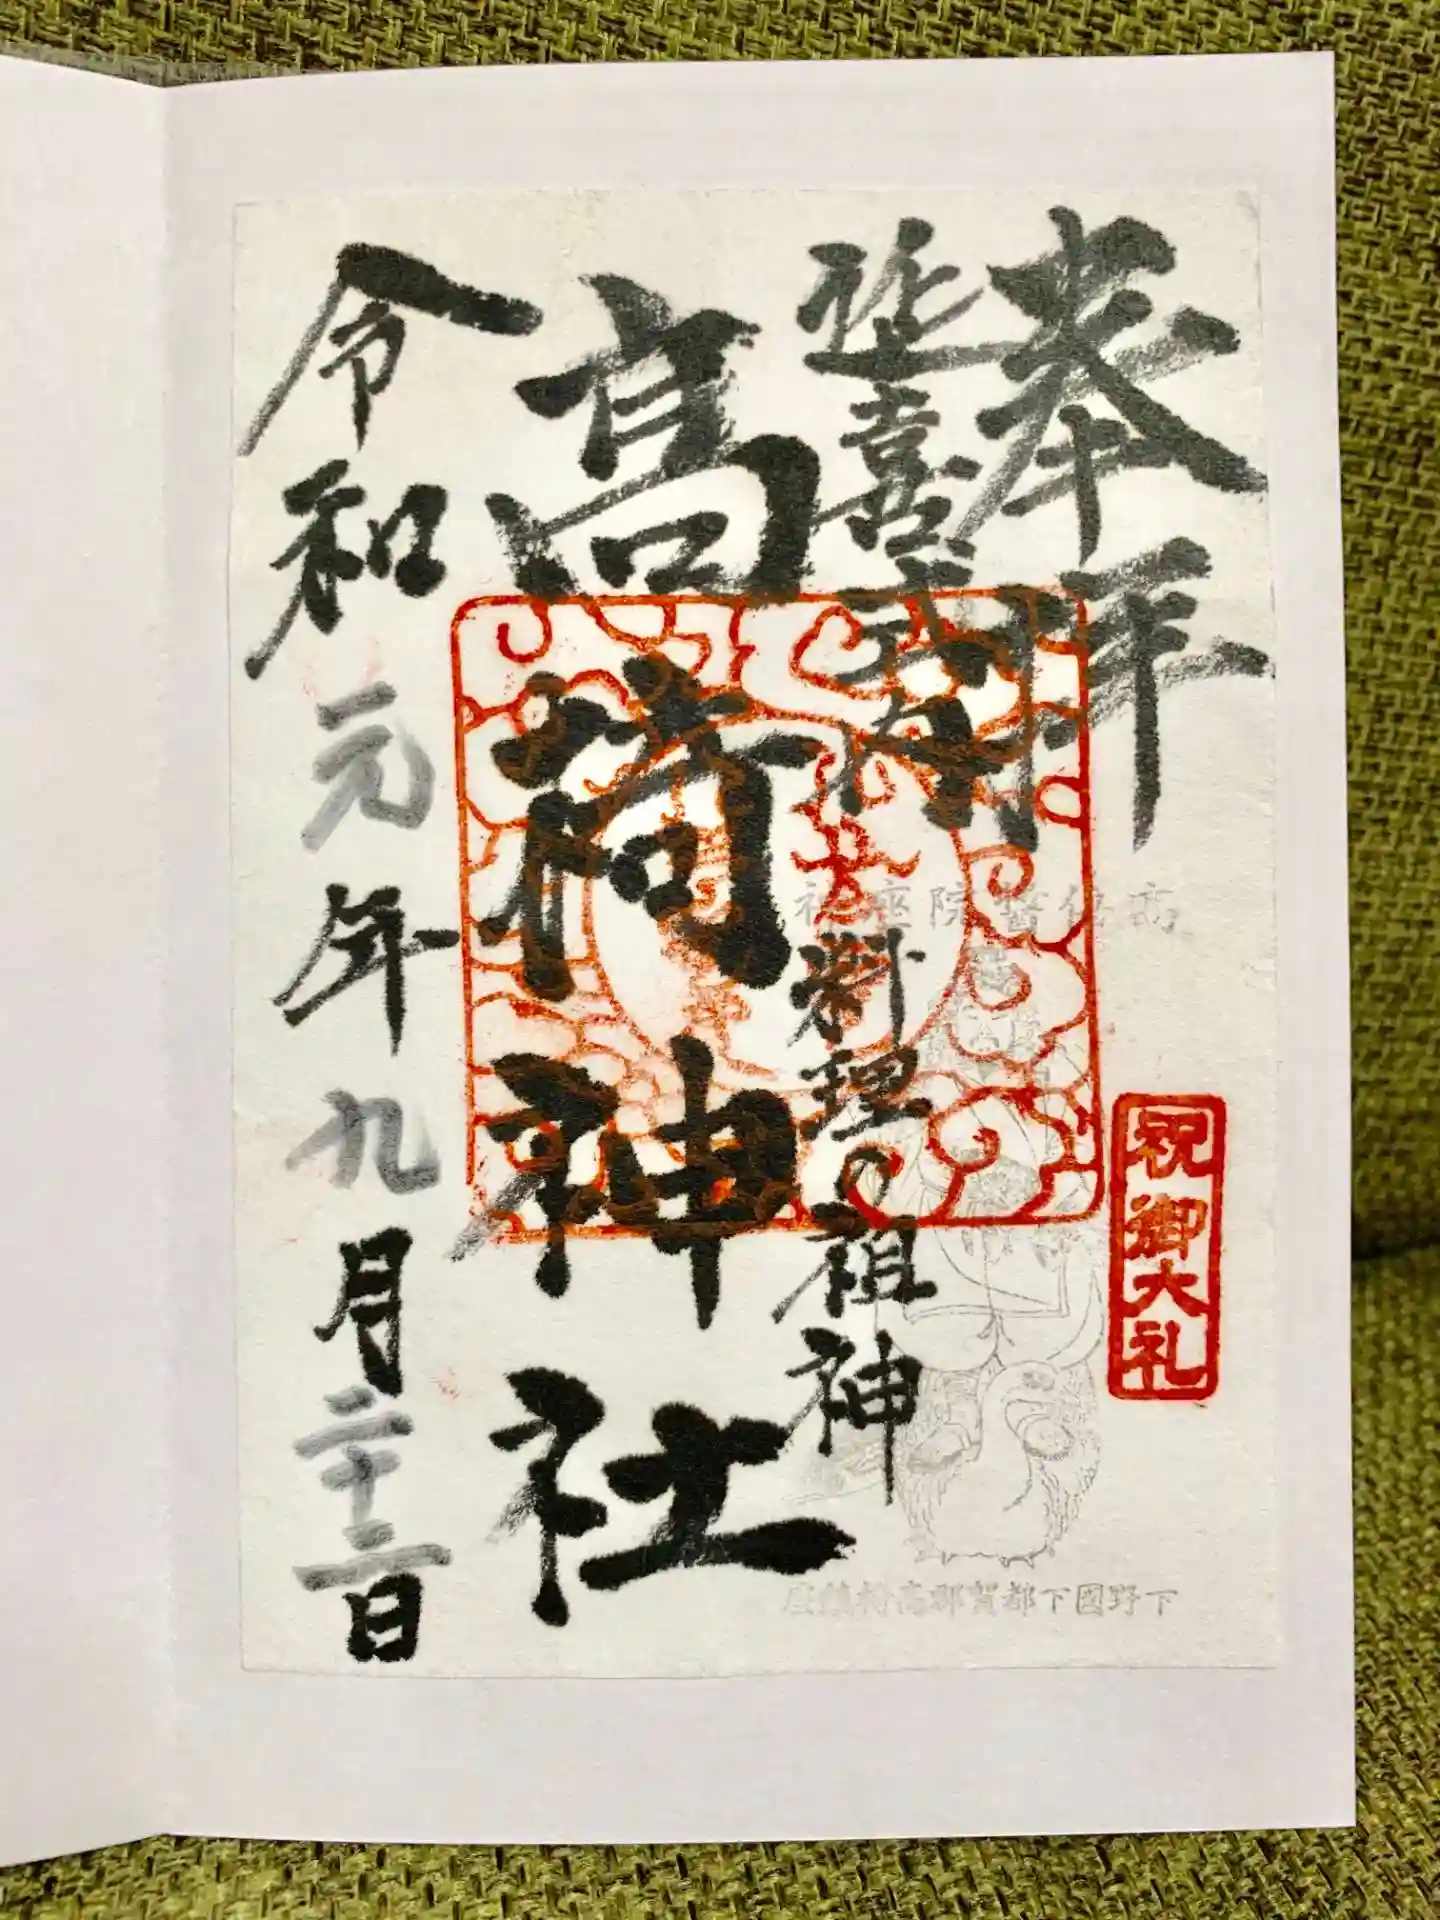 奉拝
延喜式内
料理の祖神
高椅神社
令和元年九月二十二日
祝御大礼
下野國下都賀郡高椅鎮座